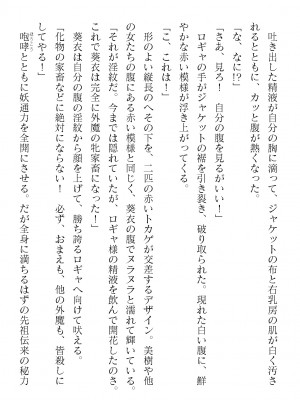 吐き出した精液が自分の胸に滴って、ジャケットの布と右乳房の肌が白く汚さ
れるとともに、カッと腹が熱くなった。
「な、なに!?」
「さあ、見ろ！　自分の腹を見るがいい！」
ロギャの手がジャケットの裾を引き裂き、破り取られた。現れた白い腹に、鮮
やかな赤い模様が浮き上がってくる。
「こ、これは！」
形のよい縦長のへその下を、二匹の赤いトカゲが交差するデザイン。美樹や他
の女たちの腹にある赤い模様と同じく、葵衣の腹でヌラヌラと濡れて輝いている。
「それが淫紋だ。今までは隠れていたが、ロギャ様の精液を飲んで開花したのさ。
これで葵衣は完全に外魔の牝家畜になった！」
葵衣は自分の腹の淫紋から顔を上げて、勝ち誇るロギャへ向けて吠える。
「化物の家畜などに絶対にならない！　必ず、おまえも、他の外魔も、皆殺しに
してやる！」
咆哮とともに妖通力を全開にさせる。だが全身に満ちるはずの先祖伝来の秘力